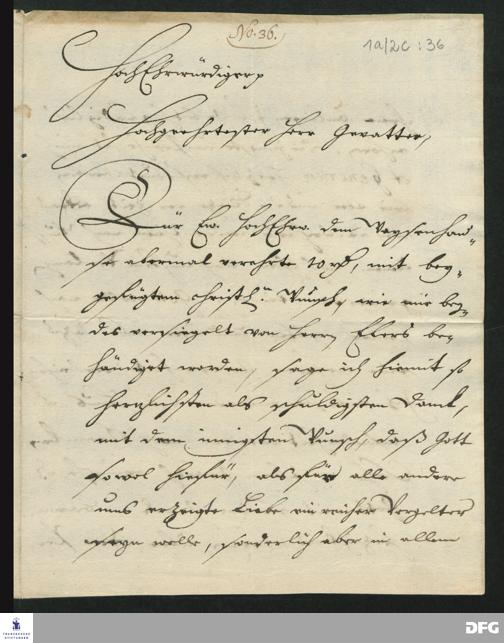 No. 36.
1a/2c : 36
HochEhrwürdiger p
Hochgeehrtester Herr Gevatter,
Für Ew. HochEhrw. dem Waysenhau„
se abermal verehrte 10 rh, mit bey„
gefügtem christl. Wunsch, wie mir bey„
des versiegelt von Herrn Elers be„
händiget worden, sage ich hiemit so
hertzlichsten als schuldigsten Danck,
mit dem innigsten Wunsch, daß Gott
sowol hiefür, als für alle andere
uns erzeigte Liebe ein reicher Vergelter
seyn wolle, sonderlich aber in allem
FRANCKESCHE
STIFTUNGEN
DFG